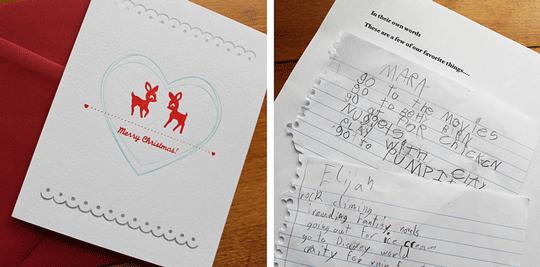 Merry Christmas!
In their own words
These are a few of our favorite things....
MARA
go to the MOVIES
go to
go FOR CHICKEN
NUGGETS
PLAY WITH
go to JUMP!CITY
Elijah
rOCK climing
reading Fantisy novels
going out for ice cream
go to Disney world